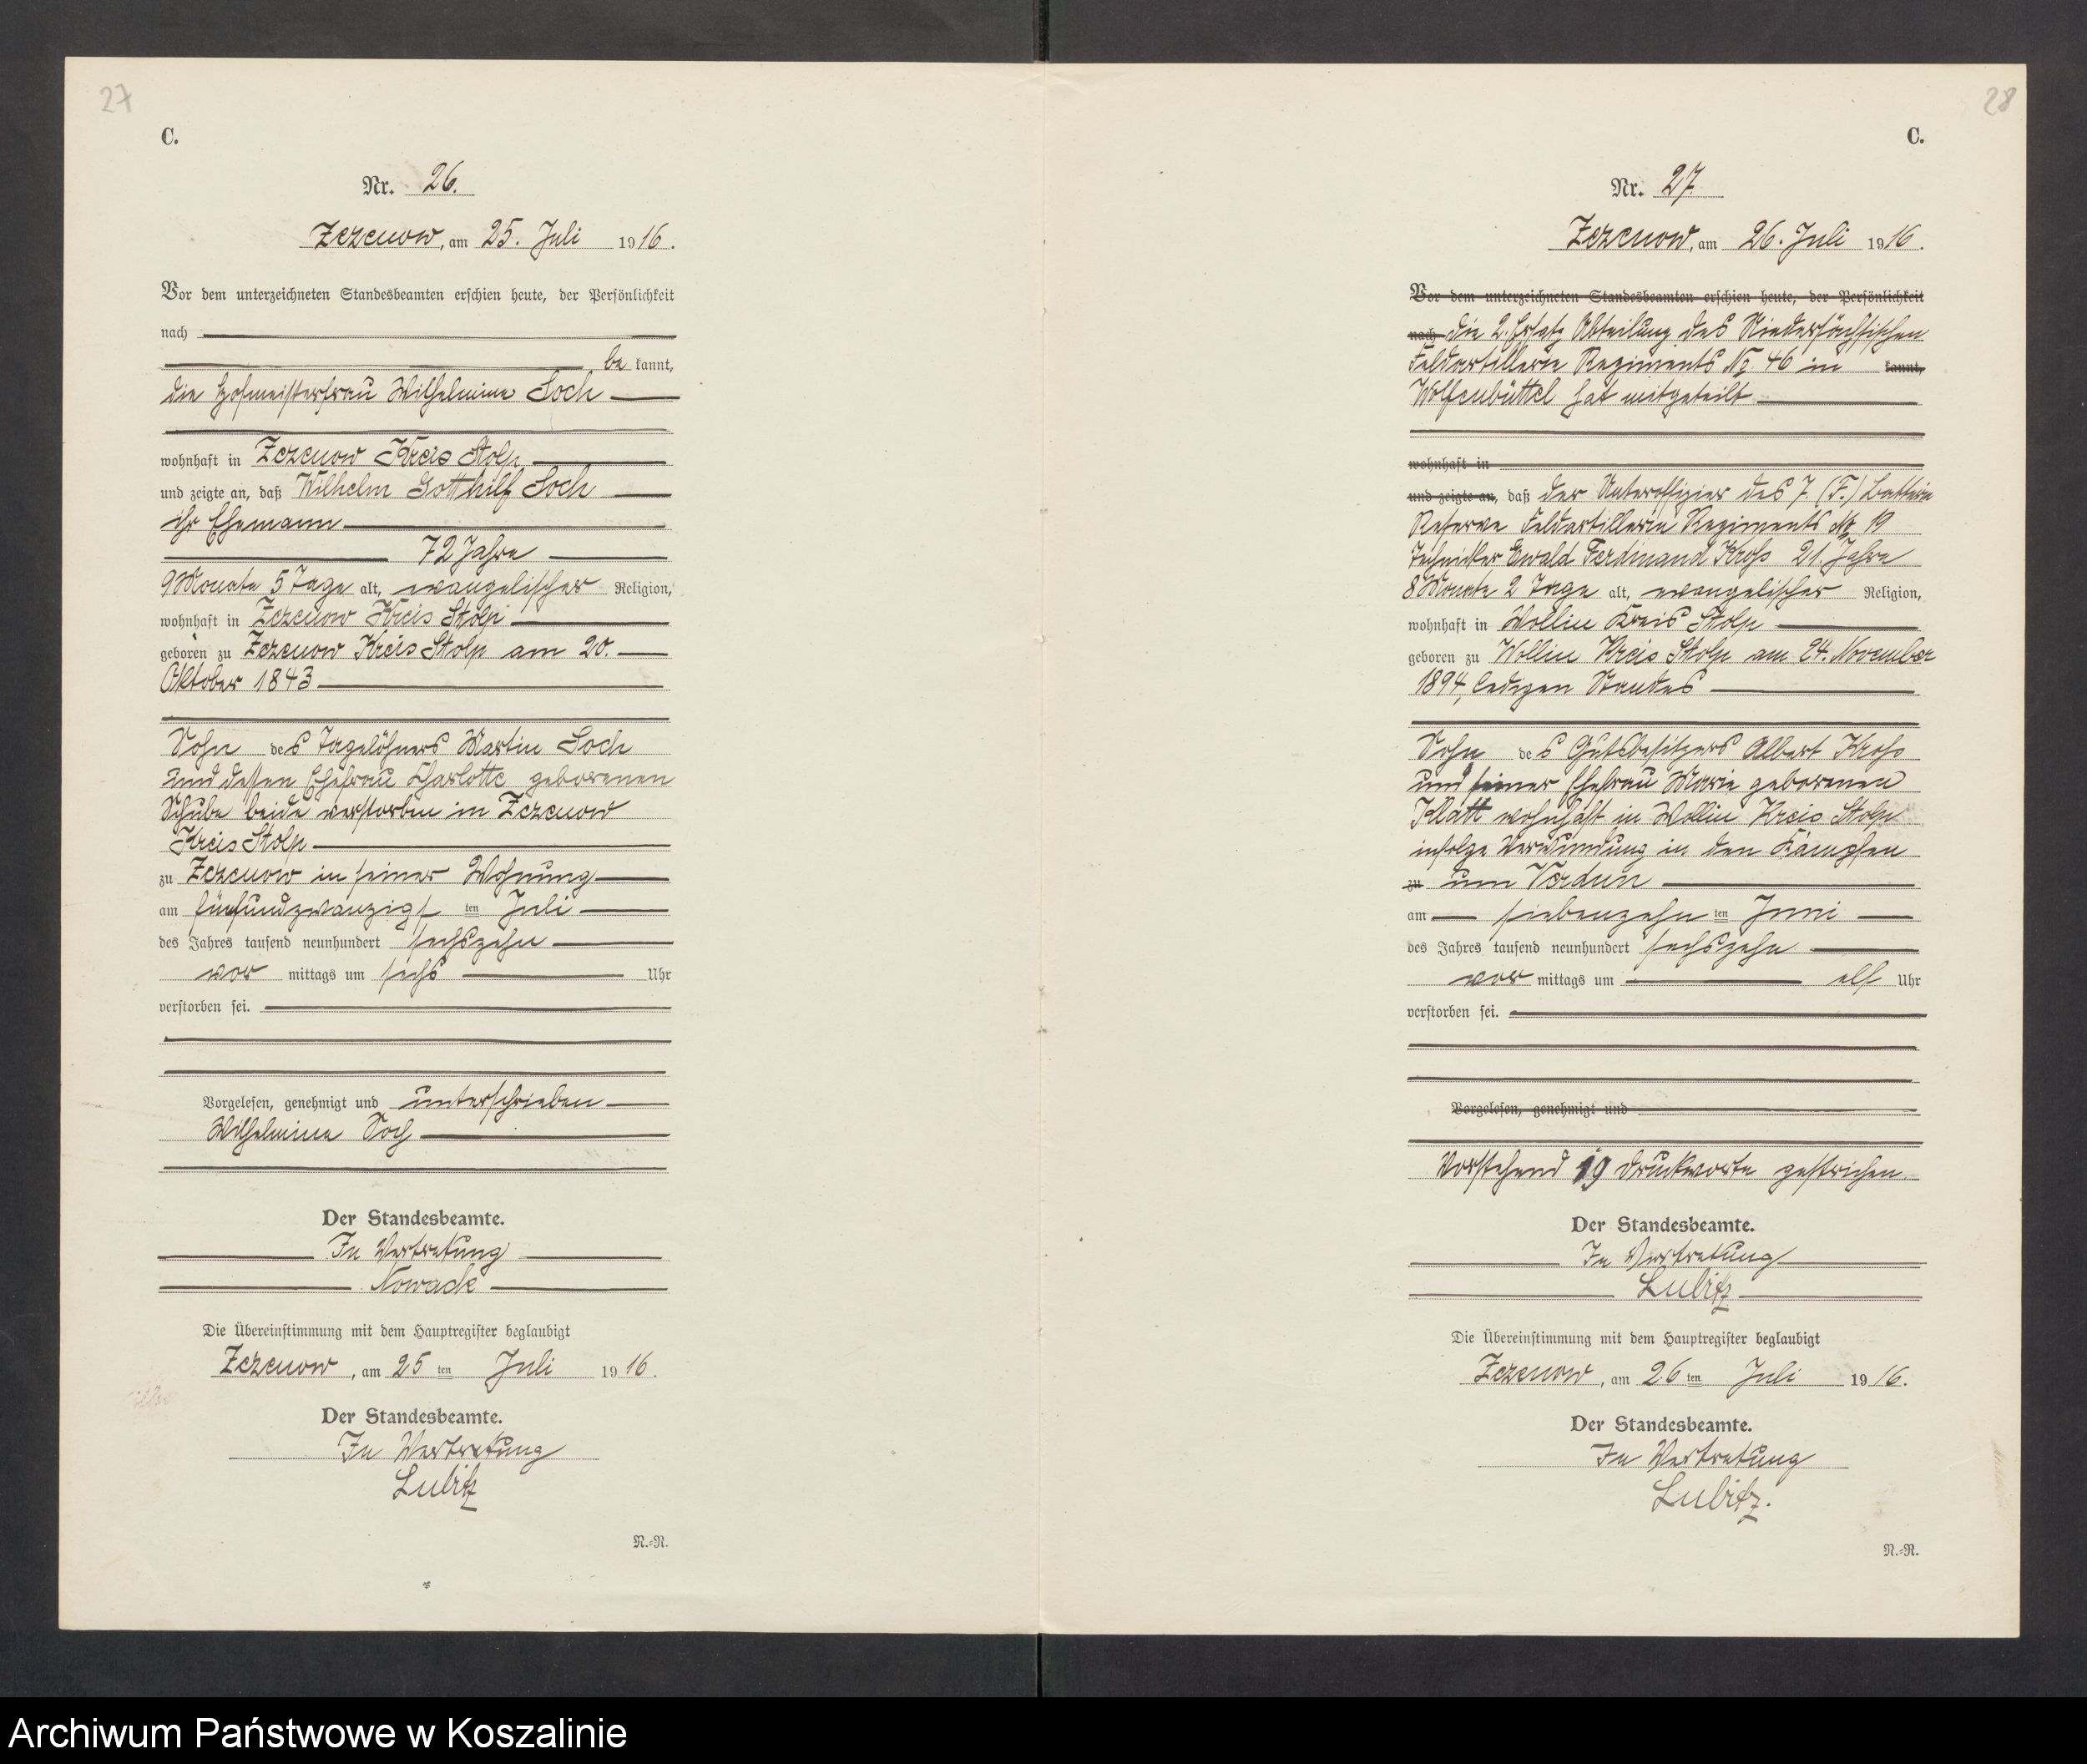 27
C.
Nr. 26.
Zezenow, am 25. Juli 1916.
Vor dem unterzeichneten Standesbeamten erschien heute, der Persönlichkeit
nach
bekannt,
die Hofmeisterfrau Wilhelmine Soch
wohnhaft in Zezenow Kreis Stolp
und zeigte an, daß Wilhelm Gotthilf Soch
ihr Ehemann
72 Jahre
9 Monate 5 Tage alt, evangelischer Religion,
wohnhaft in Zezenow Kreis Stolp
geboren zu Zezenow Kreis Stolp am 20.
Oktober 1843
Sohn des Tagelöhners Martin Soch
und dessen Ehefrau Charlotte geborenen
Schube beide verstorben in Zezenow
Kreis Stolp
zu Zezenow in seiner Wohnung
am fünfundzwanzigsten Juli
des Jahres tausend neunhundert sechszehn
vor mittags um sechs Uhr
verstorben sei.
Vorgelesen, genehmigt und unterschrieben
Wilhelmine Soch
Der Standesbeamte.
In Vertretung
Nowack
Die Übereinstimmung mit dem Hauptregister beglaubigt
Zezenow, am 25ten Juli 1916.
Der Standesbeamte.
In Vertretung
Lubitz
N.=R.
28
C.
Nr. 27.
Zezenow, am 26. Juli 1916.
Vor dem unterzeichneten Standesbeamten erschien heute, der Persönlichkeit
nach die 2. Ersatz Abteilung des Niedersächsischen
Feldartillerie Regiments No. 46 in kannt,
Wolfenbüttel hat mitgeteilt
wohnhaft in
und zeigte an, daß der Unteroffizier des 7. (F.) Batterie
Reserve Feldartillerie Regiments No 19
Techniker Ewald Ferdinand Kroß 21 Jahre
8 Monate 2 Tage alt, evangelischer Religion,
wohnhaft in Wollin Kreis Stolp
geboren zu Wollin Kreis Stolp am 24. November
1894, ledigen Standes
Sohn des Gutsbesitzers Albert Kroß
und seiner Ehefrau Marie geborenen
Klatt wohnhaft in Wollin Kreis Stolp
infolge Verwundung in den Kämpfen
zu um Verdun
am siebenzehnten Juni
des Jahres tausend neunhundert sechszehn
vor mittags um elf Uhr
verstorben sei.
Vorgelesen, genehmigt und
Vorstehend 19 Druckworte gestrichen.
Der Standesbeamte.
In Vertretung
Lubitz
Die Übereinstimmung mit dem Hauptregister beglaubigt
Zezenow, am 26ten Juli 1916.
Der Standesbeamte.
In Vertretung
Lubitz.
N.=R.
Archiwum Państwowe w Koszalinie